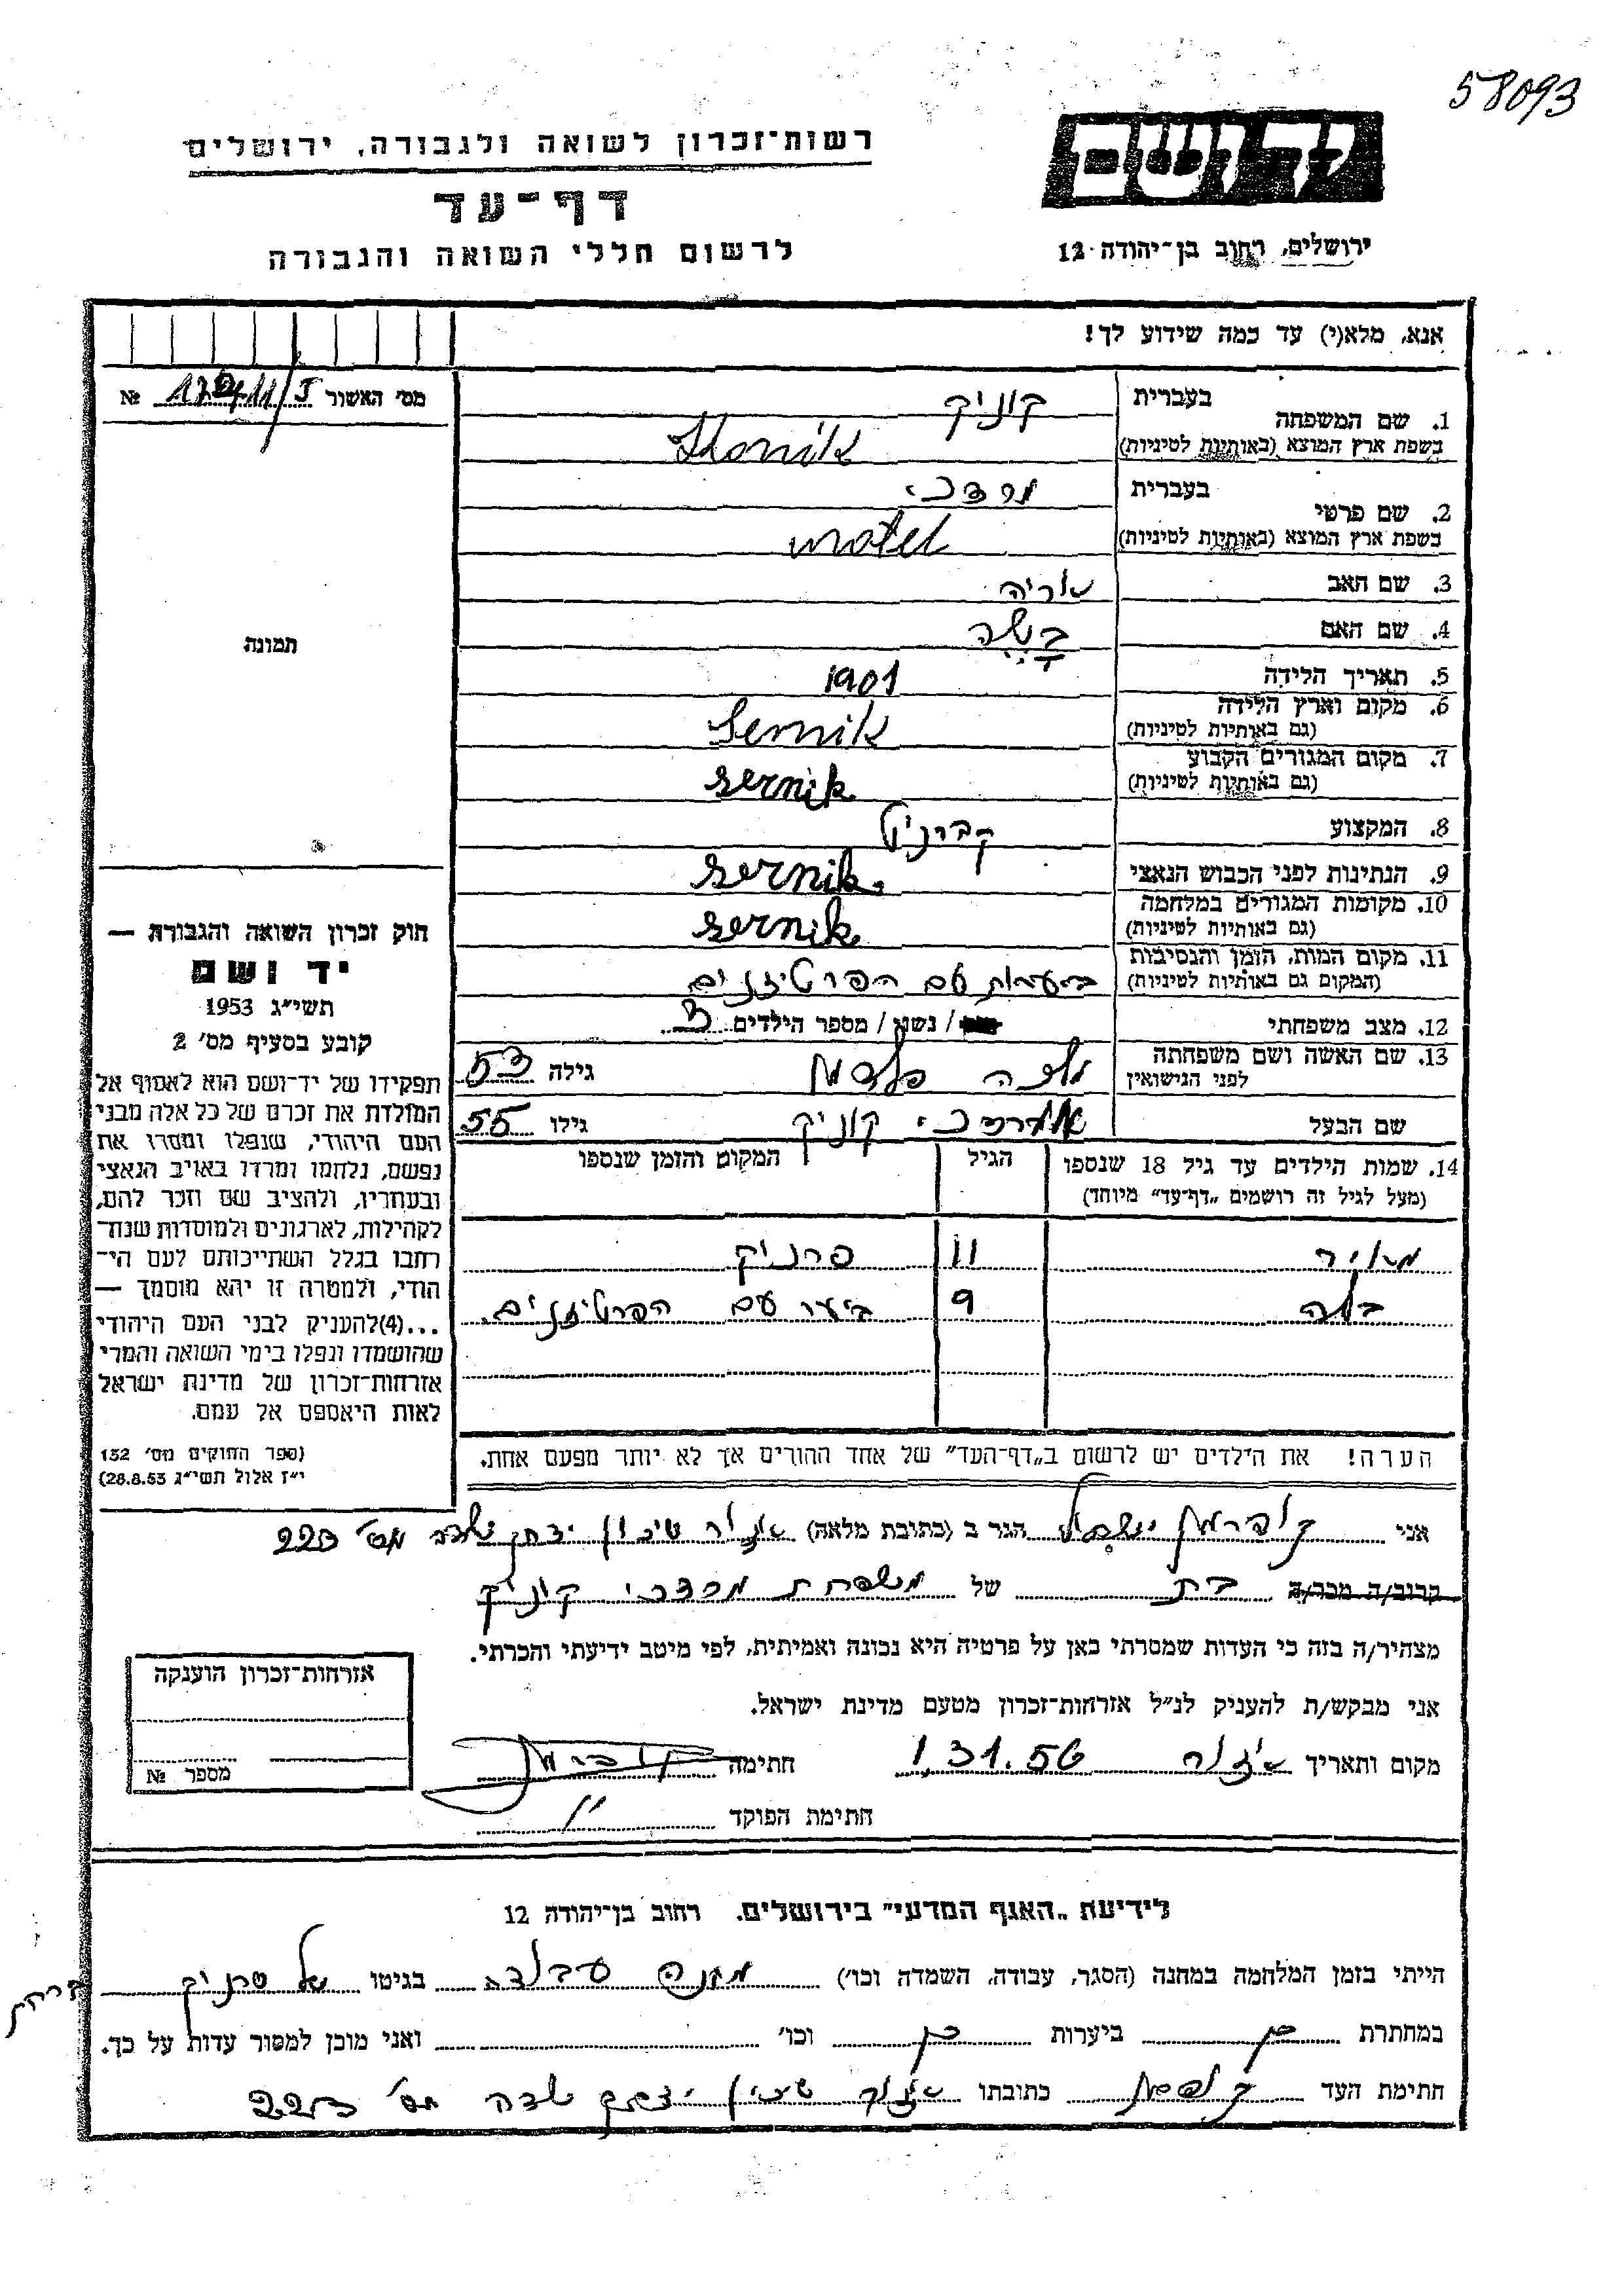 58093
יד ושם
ירושלים, רחוב בן-יהודה 12
רשות-זכרון לשואה ולגבורה, ירושלים
דף-עד
לרשום חללי השואה והגבורה
אנא, מלא(י) עד כמה שידוע לך!
מס' האשור №
1. שם המשפחה בעברית קוניק
בשפת ארץ המוצא (באותיות לטיניות) Konik
2. שם פרטי בעברית מרדכי
בשפת ארץ המוצא (באותיות לטיניות) motel
3. שם האב אריה
4. שם האם
5. תאריך הלידה 1901
6. מקום וארץ הלידה (גם באותיות לטיניות) Sernik
7. מקום המגורים הקבוע (גם באותיות לטיניות) sernik
8. המקצוע
9. הנתינות לפני הכבוש הנאצי sernik.
10. מקומות המגורים במלחמה (גם באותיות לטיניות) sernik
11. מקום המות, הזמן והנסיבות (המקום גם באותיות לטיניות) ביערות עם הפרטיזנים
12. מצב משפחתי / נשוי / מספר הילדים 3
13. שם האשה ושם משפחתה לפני הנישואין גילה 53
שם הבעל מרדכי קוניק גילו 55
14. שמות הילדים עד גיל 18 שנספו (מעל לגיל זה רושמים „דף-עד" מיוחד) הגיל המקום והזמן שנספו
מאיר 11
9 ביער עם הפרטיזנים.
הערה! את הילדים יש לרשום ב„דף-העד" של אחד ההורים אך לא יותר מפעם אחת.
תמונה
חוק זכרון השואה והגבורה —
יד ושם
תשי"ג 1953
קובע בסעיף מס' 2
תפקידו של יד-ושם הוא לאסוף אל
המולדת את זכרם של כל אלה מבני
העם היהודי, שנפלו ומסרו את
נפשם, נלחמו ומרדו באויב הנאצי
ובעוזריו, ולהציב שם וזכר להם,
לקהילות, לארגונים ולמוסדות שנח-
רבו בגלל השתייכותם לעם הי-
הודי, ולמטרה זו יהא מוסמך —
...(4)להעניק לבני העם היהודי
שהושמדו ונפלו בימי השואה והמרי
אזרחות-זכרון של מדינת ישראל
לאות היאספם אל עמם.
(ספר החוקים מס' 132
י"ז אלול תשי"ג 28.8.53)
אני הגר ב (כתובת מלאה) אזור מס' 223
קרוב/ה מכר/ה בת של משפחת מרדכי קוניק
מצהיר/ה בזה כי העדות שמסרתי כאן על פרטיה היא נכונה ואמיתית, לפי מיטב ידיעתי והכרתי.
אני מבקש/ת להעניק לנ"ל אזרחות-זכרון מטעם מדינת ישראל.
מקום ותאריך אזור 1.31.56 חתימה
חתימת הפוקד
אזרחות-זכרון הוענקה
מספר №
לידיעת „האגף המדעי" בירושלים. רחוב בן-יהודה 12
הייתי בזמן המלחמה במחנה (הסגר, עבודה, השמדה וכו') מחנה עבודה בגיטו של סרניק
במחתרת כן ביערות כן וכו' ואני מוכן למסור עדות על כך.
חתימת העד כתובתו מס' 223